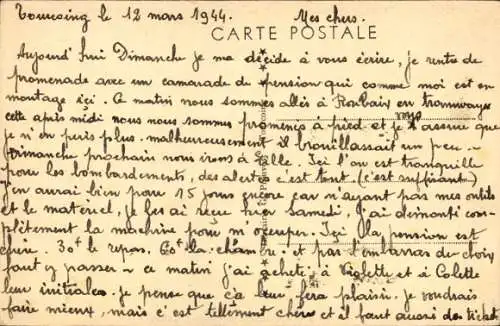 Tourcoing le 12 mars 1944. Mes chers.
CARTE POSTALE
Aujourd'hui Dimanche je me décide à vous écrire, je rentre de
promenade avec un camarade de pension qui comme moi est en
montage içi. Ce matin nous sommes allés à Roubaix en tramways
cette après midi nous nous sommes promenés à pied et je t'assure que
je n'en peris plus. malheureusement il brouillassait un peu -
Dimanche prochain nous irons à Lille. Içi l'on est tranquille
pour les bombardements, des alertes c'est tout (c'est suffisant)
J'en aurai bien pour 15 jours encore car n'ayant pas mes outils
et le matériel, je les ai reçu hier samedi, j'ai démonté com-
plètement la machine pour m'occuper. Içi la pension est
chère. 30f le repas. 60f la chambre et par l'embarras de choix
faut y passer - ce matin j'ai acheté à Violette et à Colette
leur initiales. je pense que ça leur fera plaisir. Je voudrais
faire mieux, mais c'est tellement chère et il faut aussi des ticket